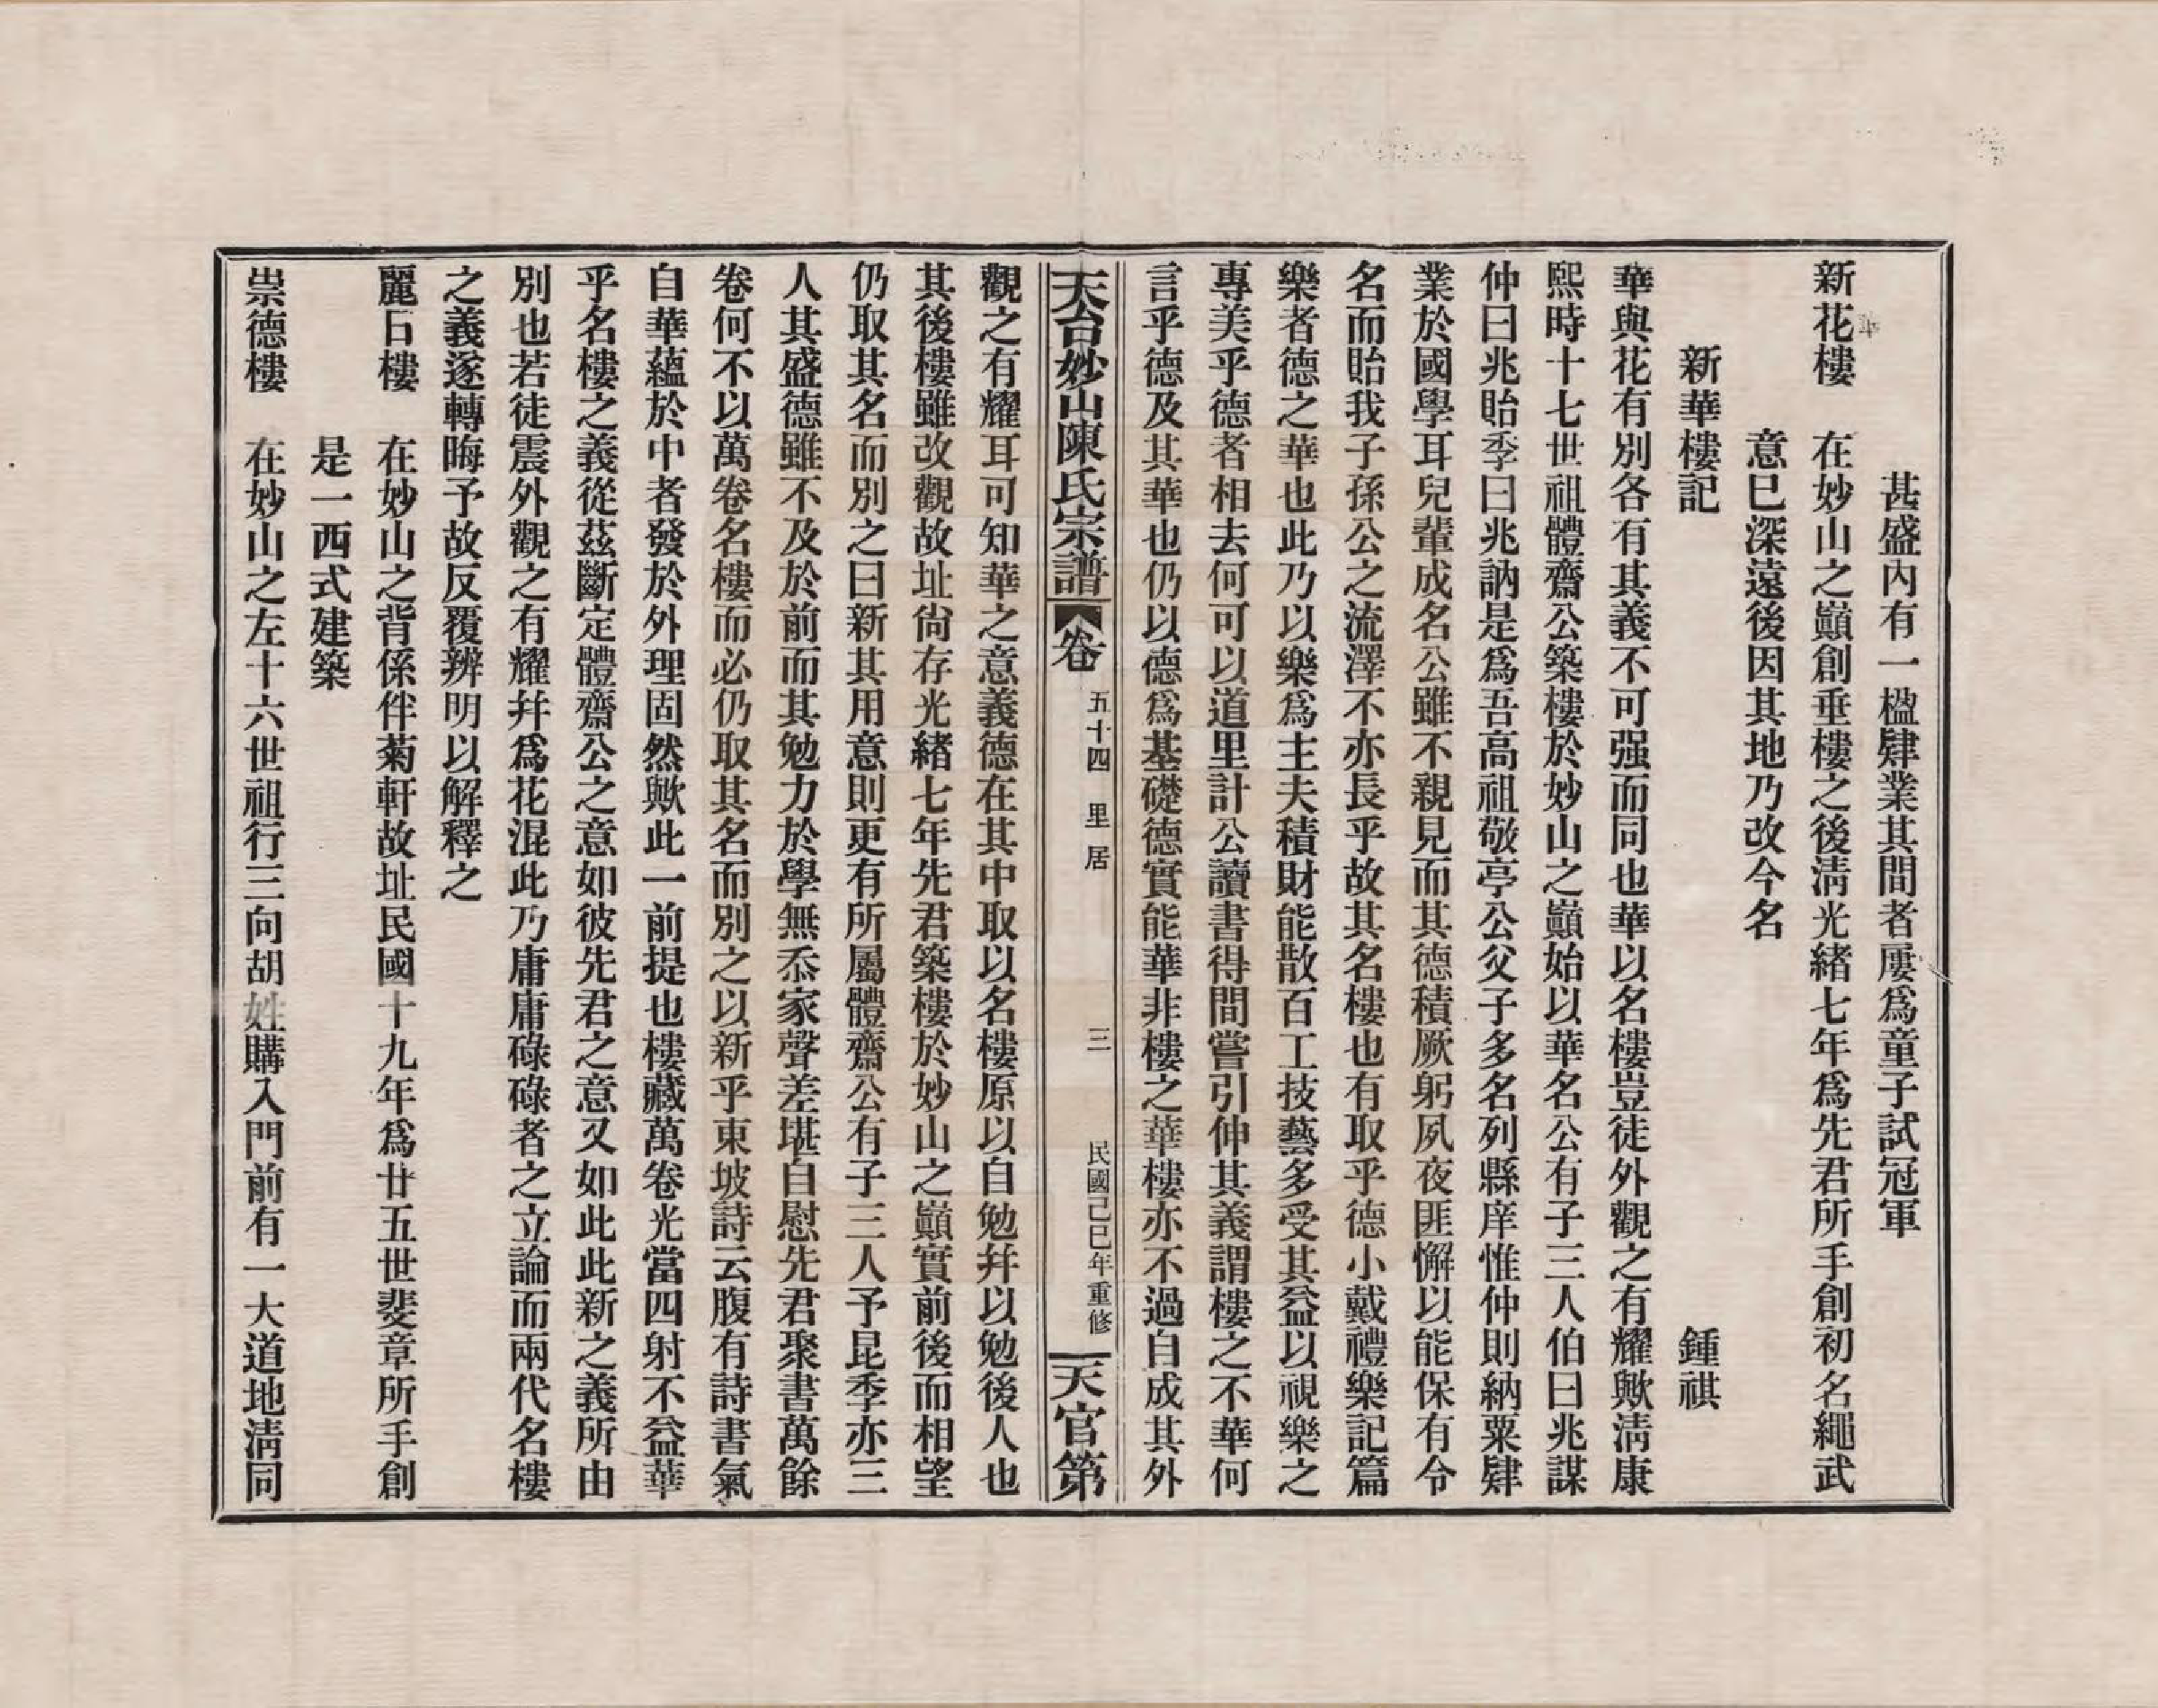 甚盛內有一楹肄業其間者屢爲童子試冠軍
新花樓　在妙山之巓創垂樓之後淸光緒七年爲先君所手創初名繩武
華
意已深遠後因其地乃改今名
新華樓記　鍾祺
華與花有別各有其義不可强而同也華以名樓豈徒外觀之有耀歟淸康
熙時十七世祖體齋公築樓於妙山之巓始以華名公有子三人伯曰兆謀
仲曰兆貽季曰兆訥是爲吾高祖敬亭公父子多名列縣庠惟仲則納粟肄
業於國學耳兒輩成名公雖不親見而其德積厥躬夙夜匪懈以能保有令
名而貽我子孫公之流澤不亦長乎故其名樓也有取乎德小戴禮樂記篇
樂者德之華也此乃以樂爲主夫積財能散百工技藝多受其益以視樂之
專美乎德者相去何可以道里計公讀書得間嘗引伸其義謂樓之不華何
言乎德及其華也仍以德爲基礎德實能華非樓之華樓亦不過自成其外
天台妙山陳氏宗譜　卷　五十四　里居　三　民國己巳年重修　天官第
觀之有耀耳可知華之意義德在其中取以名樓原以自勉幷以勉後人也
其後樓雖改觀故址尙存光緒七年先君築樓於妙山之巓實前後而相望
仍取其名而別之曰新其用意則更有所屬體齋公有子三人予昆季亦三
人其盛德雖不及於前而其勉力於學無忝家聲差堪自慰先君聚書萬餘
卷何不以萬卷名樓而必仍取其名而別之以新乎東坡詩云腹有詩書氣
自華蘊於中者發於外理固然歟此一前提也樓藏萬卷光當四射不益華
乎名樓之義從茲斷定體齋公之意如彼先君之意又如此此新之義所由
別也若徒震外觀之有耀幷爲花混此乃庸庸碌碌者之立論而兩代名樓
之義遂轉晦予故反覆辨明以解釋之
麗日樓　在妙山之背係伴菊軒故址民國十九年爲廿五世斐章所手創
是一西式建築
祟德樓　在妙山之左十六世祖行三向胡姓購入門前有一大道地淸同